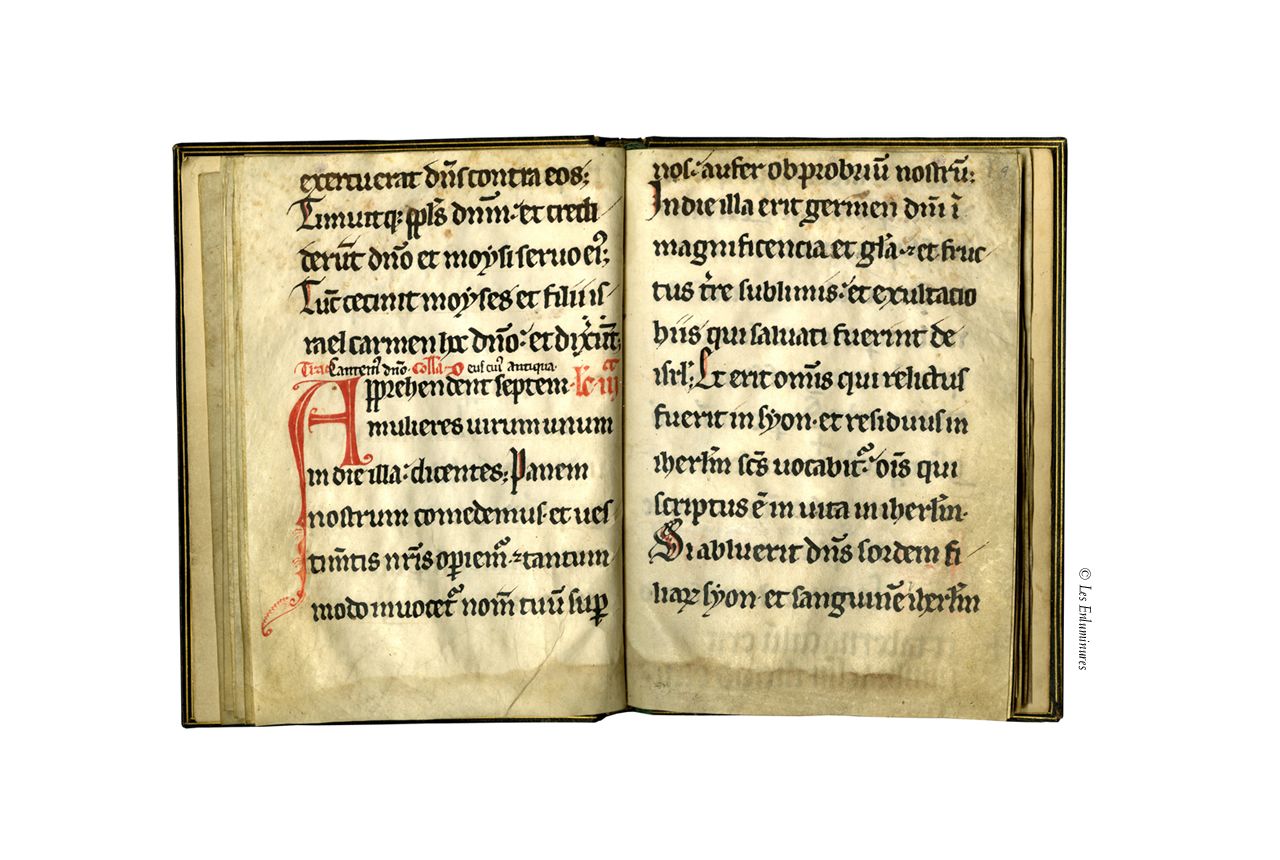 exercuerat dn̄s contra eos;
Timuitq; ppl̄s dn̄m·et credi
derūt dn̄o et moysi seruo eiꝰ;
Tūc cecinit moyses et filii is/
rael carmen hoc dn̄o: et dixer̄t;
Trac Cantemꝰ dn̄o· Coll̄a D eus cuiꝰ antiqua·
Apprehendent septem· lc̄ iii
mulieres uirum unum
in die illa: dicentes; Panem
nostrum comedemus·et ues
tim̄tis nr̄is operiemᷣ·⁊tantum
modo inuocetᷣ nom̄ tuū suꝑ
nos: aufer obprobriū nostrū:
In die illa erit germen dn̄i ī
magnificencia et gl̄a·⁊et fruc
tus tr̄re sublimis: et exultatio
hiis qui saluati fuerint de
isrl̄; Et erit omīs qui relictus
fuerit in syon·et residuus in
iherlm̄ sc̄s uocabitᷣ: oīs qui
scriptus ē in uita in iherlm̄·
Si abluerit dn̄s sordem fi
liaꝝ syon·et sanguinē iherlm̄
© Les Enluminures